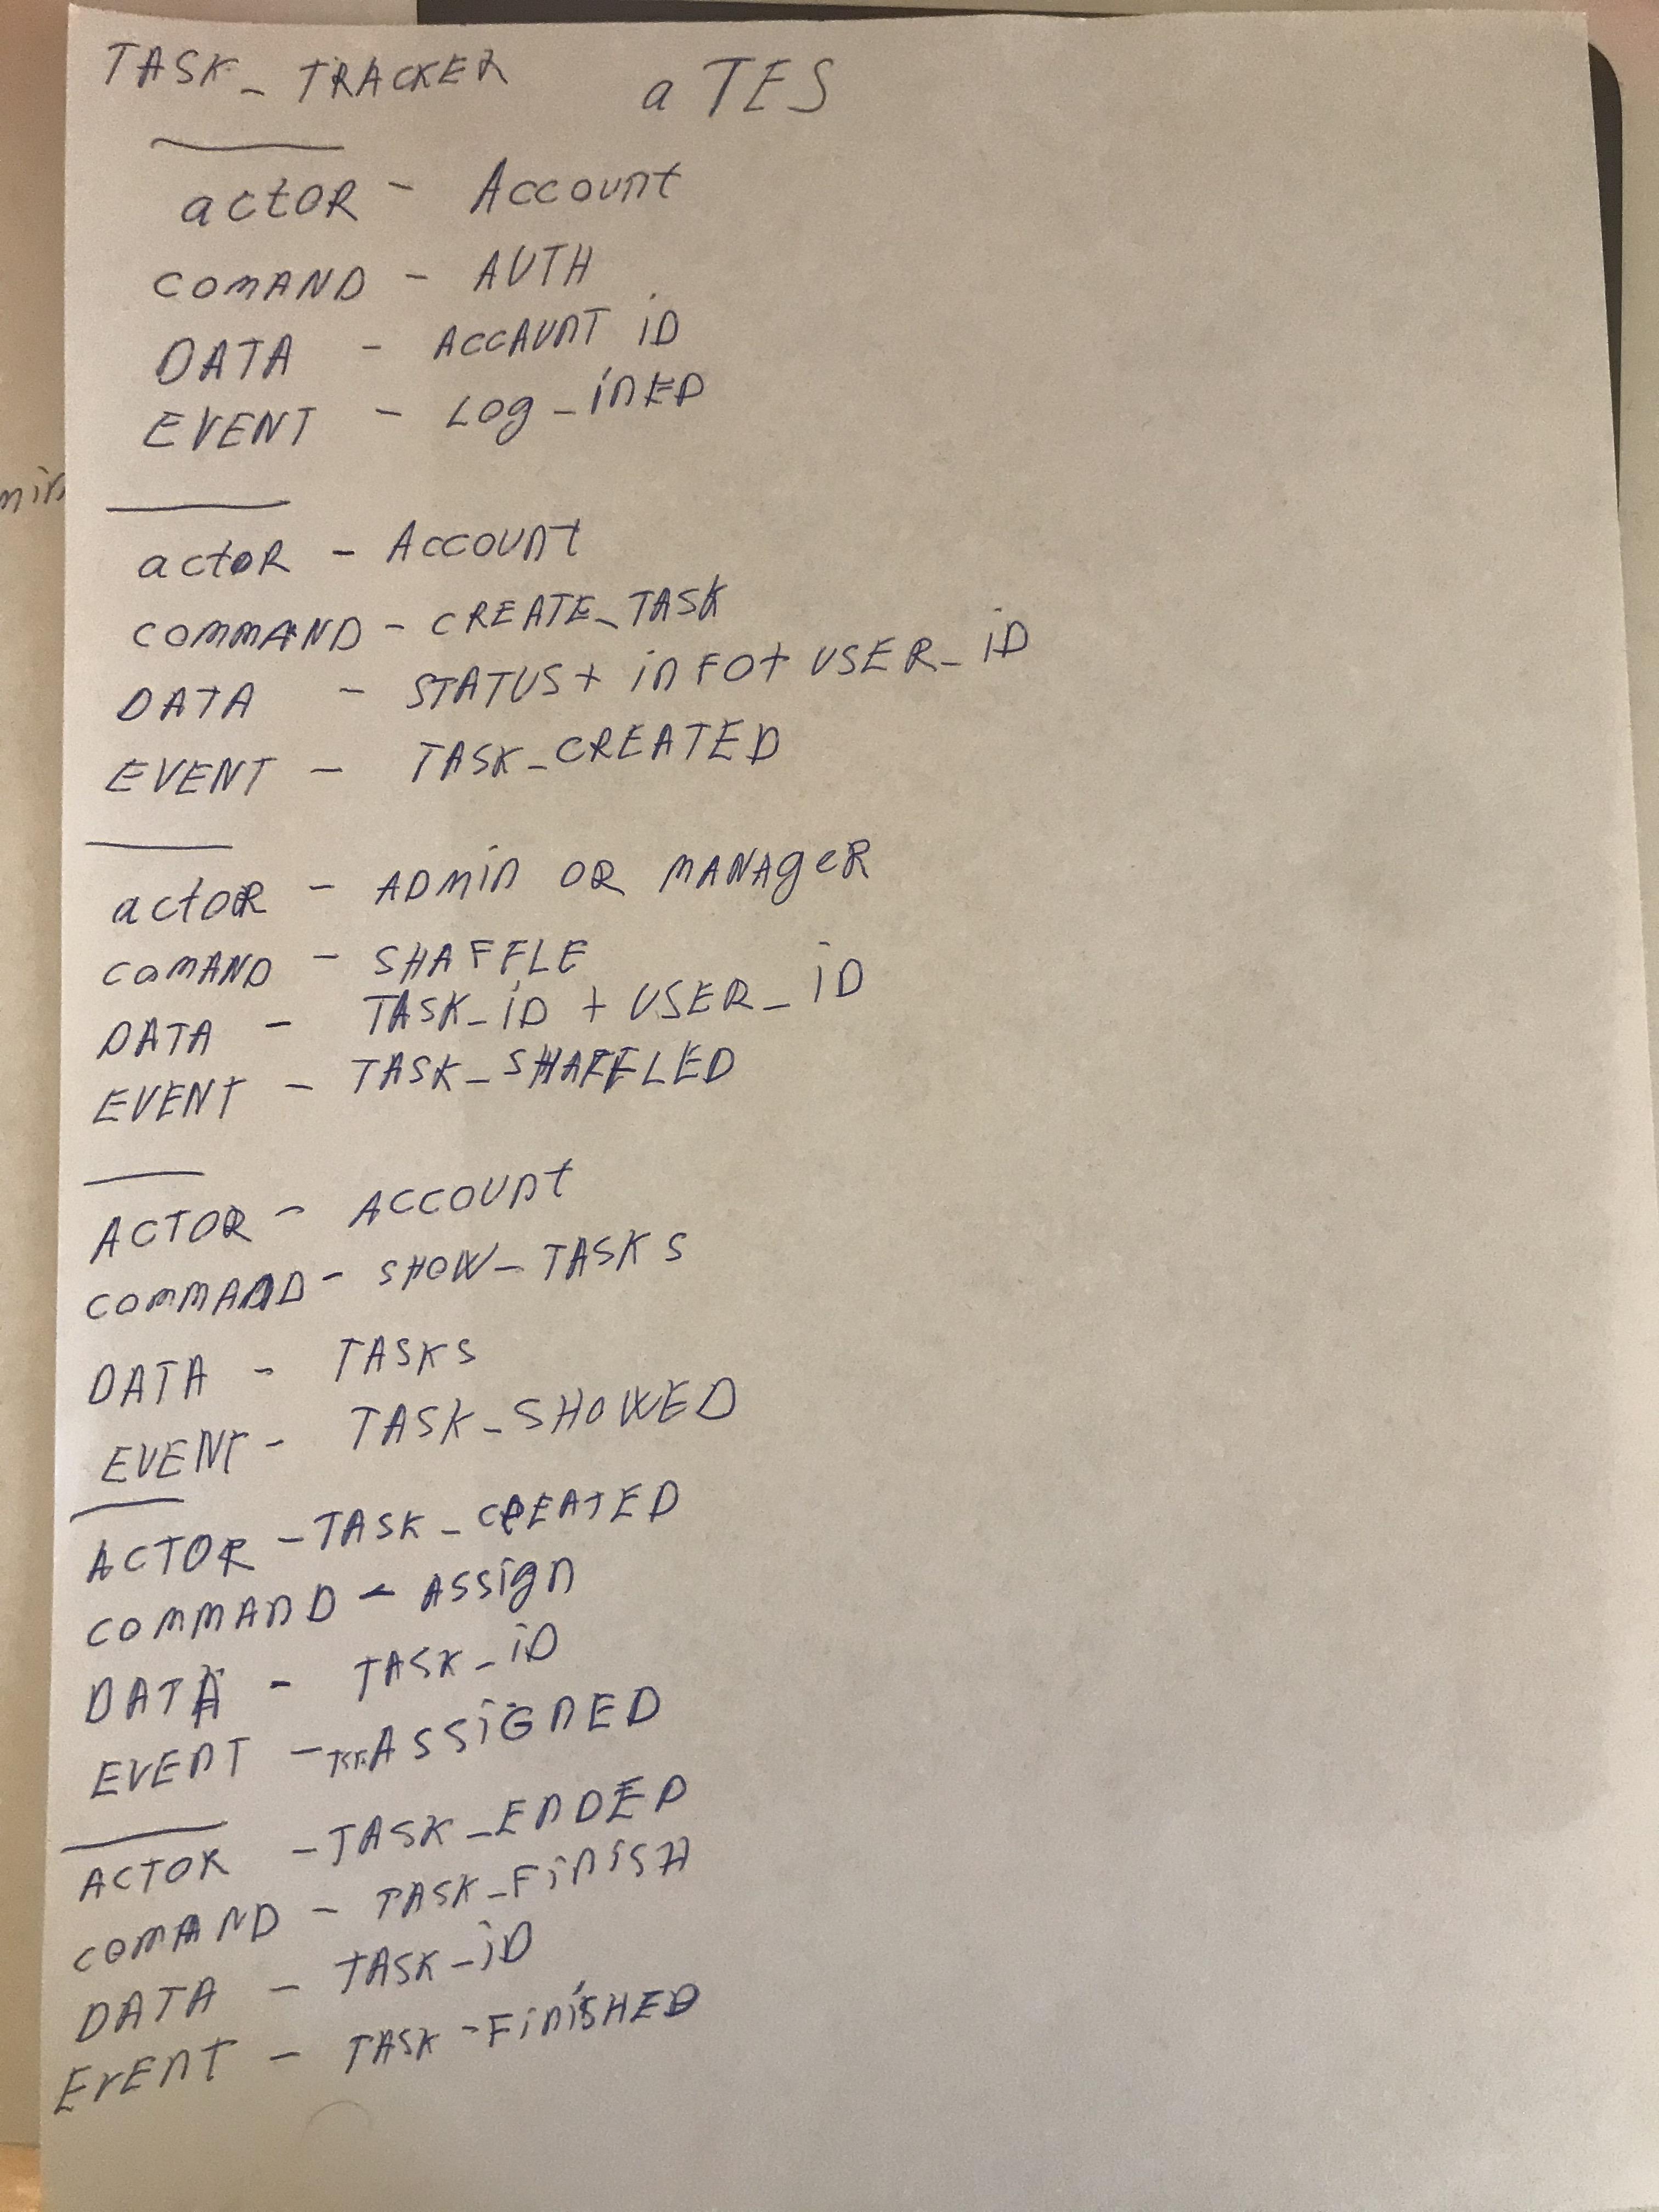 TASK_TRACKER aTES
actor - Account
COMAND - AUTH
DATA - ACCAUNT iD
EVENT - LOg_inED
actor - Account
COMMAND - CREATE_TASK
DATA - STATUS + inFO + USER_iD
EVENT - TASK_CREATED
actor - ADMin OR MANAgeR
COMAND - SHAFFLE
DATA - TASK_iD + USER_iD
EVENT - TASK_SHAFFLED
ACTOR - ACCOUnt
COMMAND - SHOW_TASKS
DATA - TASKS
EVENT - TASK_SHOWED
ACTOR - TASK_CREATED
COMMAND - ASSign
DATA - TASK_iD
EVENT - ASSiGnED
ACTOR - TASK_EnDED
COMAND - TASK_FiniSH
DATA - TASK_iD
EVEnT - TASK-FiniSHED
min